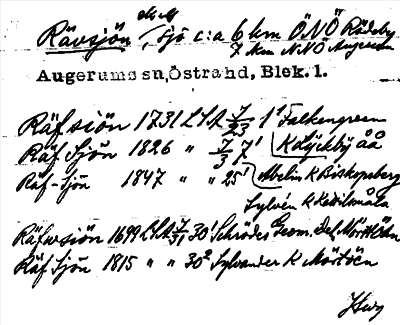 Rävsjön, sjö c:a 6 km ÖNÖ Rödeby
7 km NNÖ Augerum
Augerums sn, Östra hd, Blek. l.
Räfsiön 1731 LSA 7/23 1¹ Falkengreen
Räf Sjön 1826 " 7/3 7¹ K Lyckby åå
Räf-Sjön 1847 " " 25¹ Melin K Biskopsberg
Sylvén K Kedilmåla
Räfwsiön 1699 LSA 7/31 30¹ Schröder Geom. Del. Mörtöön
Räf Sjön 1815 " " 30² Sylvander K Mörtöen